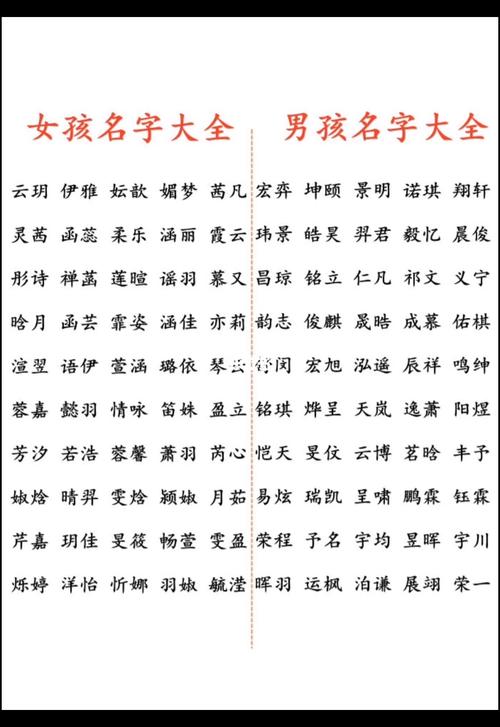 女孩名字大全
云玥 伊雅 妘歆 媚梦 茜凡
灵茜 函蕊 柔乐 涵丽 霞云
彤诗 禅菡 莲暄 谣羽 慕又
晗月 函芸 霏姿 涵佳 亦莉
渲翌 语伊 萱涵 璐依 琴
蓉嘉 懿羽 情咏 笛妹 盈立
芳汐 若浩 蓉馨 萧羽 芮心
婌焓 晴羿 雯焓 颍婌 月茹
芹嘉 玥佳 旻筱 畅萱 雯盈
烁婷 洋怡 忻娜 羽婌 毓滢
男孩名字大全
宏弈 坤颐 景明 诺琪 翔轩
玮景 皓昊 羿君 毅忆 晨俊
昌琼 铭立 仁凡 祁文 义宁
韵志 俊麒 晟皓 成慕 佑棋
闵 宏旭 泓遥 辰祥 鸣绅
铭琪 烨呈 天岚 逸萧 阳煜
恺天 旻仪 云博 茗晗 丰予
易炫 瑞凯 呈啸 鹏霖 钰霖
荣程 予名 宇均 昱晖 宇川
晖羽 运枫 泊谦 展翊 荣一